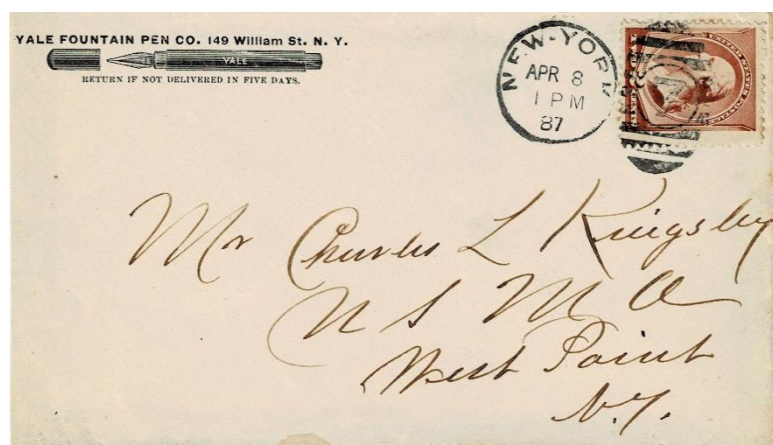 YALE FOUNTAIN PEN CO. 149 William St. N. Y.
YALE
RETURN IF NOT DELIVERED IN FIVE DAYS.
NEW-YORK
APR 8
1 PM
87
UNITED STATES POSTAGE
Mr Charles L Kingsley
U S M A
West Point
N.Y.